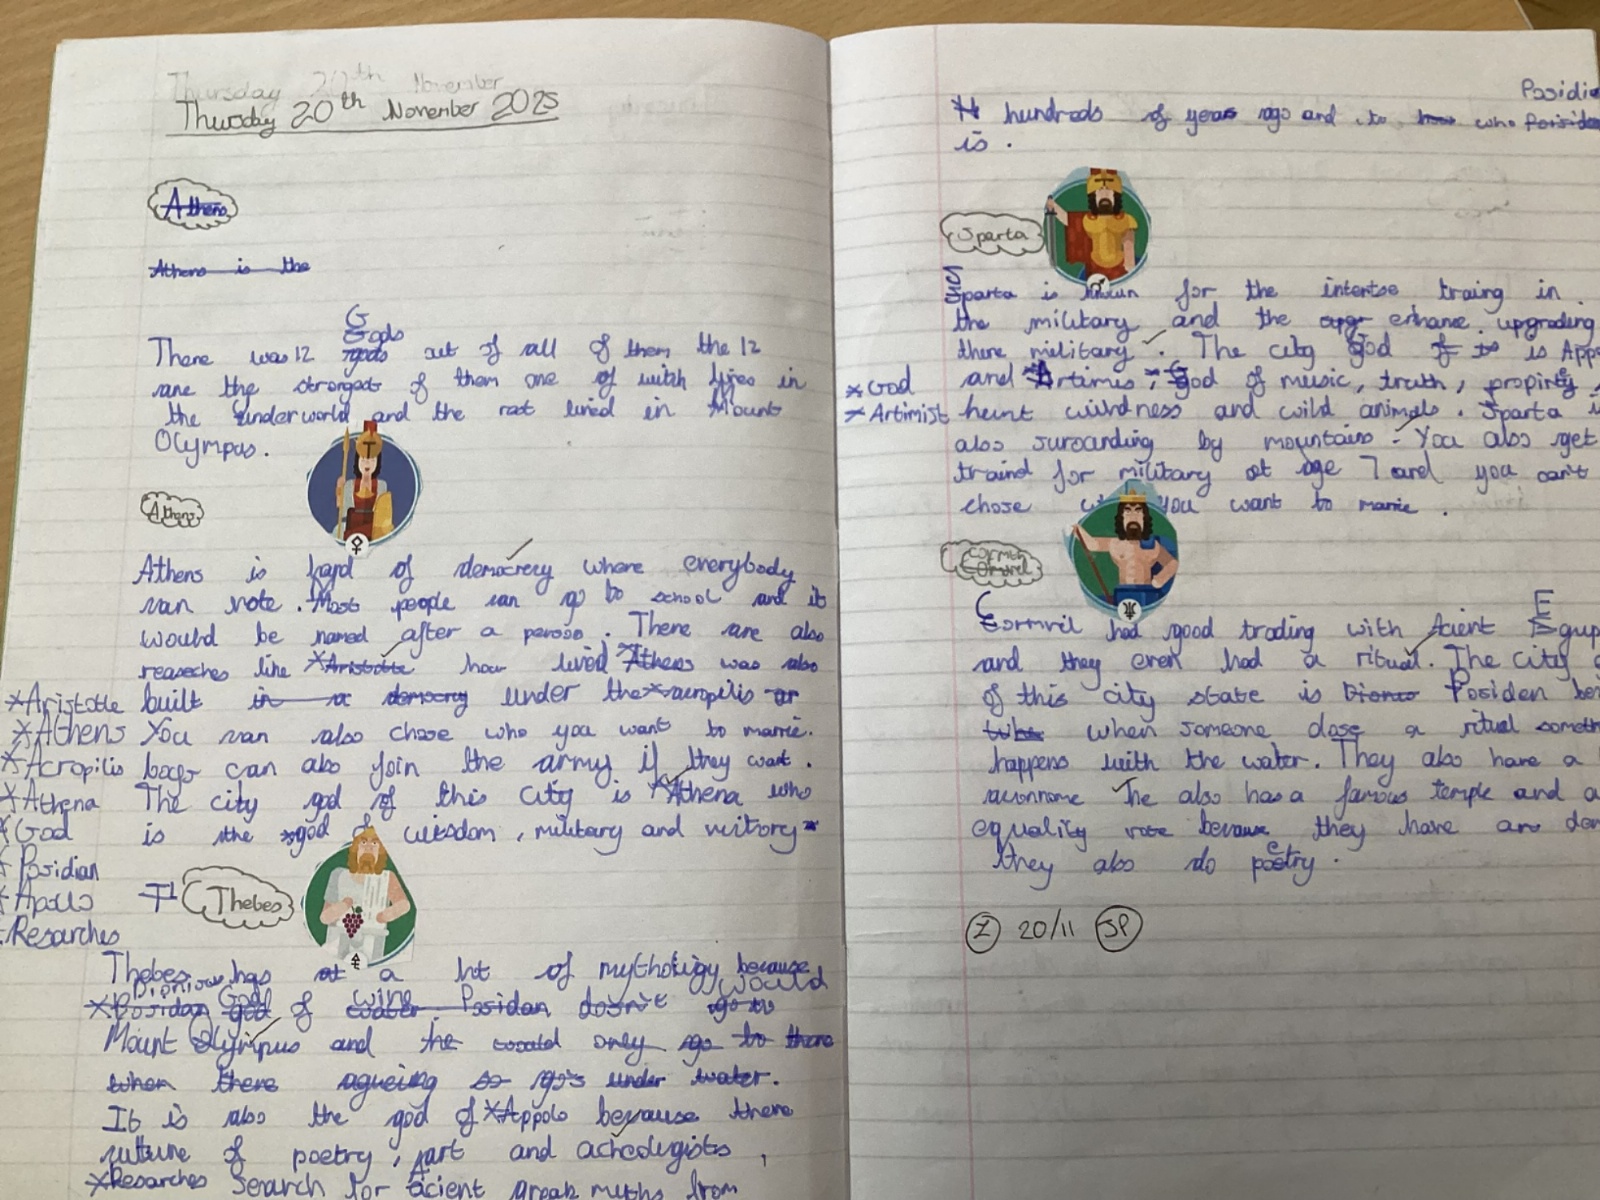 Thursday 20th November
Thursday 20th November 2025
Athens
Athens is the
Gods
There was 12 gods out of all of them the 12
are the strongest of them one of witch lives in
the underworld and the rest lived in Mount
Olympus.
Athens
Athens is hard of democrery where everybody
can vote. Most people can go to school and it
would be named after a person. There are also
reaseches like *Aristotle how lived *Athens was also
*Aristotle built in a democrery under the *acropilis or
*Athens You can also chose who you want to marrie.
*Acropilis boys can also join the army if they want.
*Athena The city god of this city is *Athena who
*God is the god of wisdom, military and victory
*Posidian
*Apollo
Thebes
*Resarches
Thebes has at a lot of mythology because
Dionisus God wine would
*Posidan god of water Posidan dosn't go to
Mount Olympus and the would only go to there
when there agueing so go's under water.
It is also the god of *Appolo because there
culture of poetry, art and achedugists,
*Resarches search for acient greak myths from
Posidi
hundreds of years ago and to who Posidon
is.
Sparta
Sparta is known for the intertse traing in
the military and the enhance upgrading
there military. The city god of is App
*God and *Artimis, God of music, truth, propirty
*Artimist hunt wildness and wild animals. Sparta i
also surounding by mountains. You also get
traind for military at age 7 and you can't
chose you want to marrie.
Cornith
Cornvil had good trading with Acient Egup
and they even had a ritual. The city
of this city state is Posiden be
when someone dose a ritual someth
happens with the water. They also have a
The also has a famous temple and a
equality vote because they have an de
they also do poetry.
I 20/11 SP